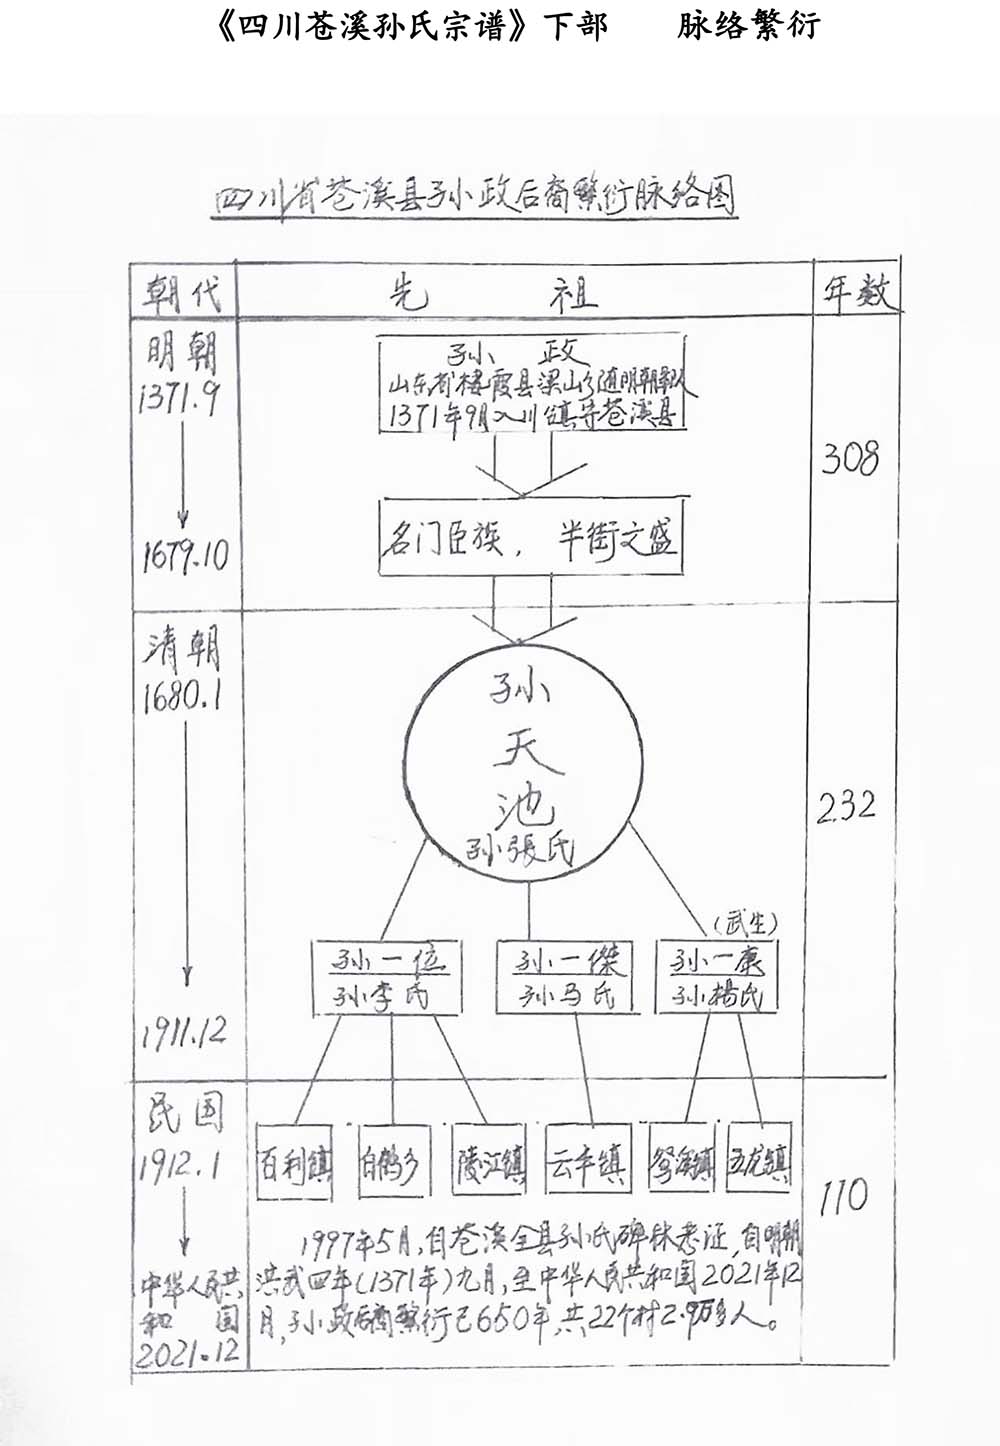 《四川苍溪孙氏宗谱》下部 脉络繁衍
四川省苍溪县孙政后裔繁衍脉络图
朝代
先 祖
年数
明朝
1371.9
1679.10
孙 政
山东省棲霞县梁山乡随明朝军队
1371年9月入川镇守苍溪县
名门臣族， 半街文盛
308
清朝
1680.1
1911.12
孙
天
池
孙張氏
(武生)
孙一位
孙李氏
孙一傑
孙马氏
孙一康
孙楊氏
232
民国
1912.1
中华人民共
和 国
2021.12
百利镇
白鹤乡
陵江镇
云峰镇
鸳溪镇
五龙镇
110
1997年5月，自苍溪全县孙氏碑林考证，自明朝
洪武四年(1371年)九月，至中华人民共和国2021年12
月，孙政后裔繁衍已650年，共22个村2.9万多人。